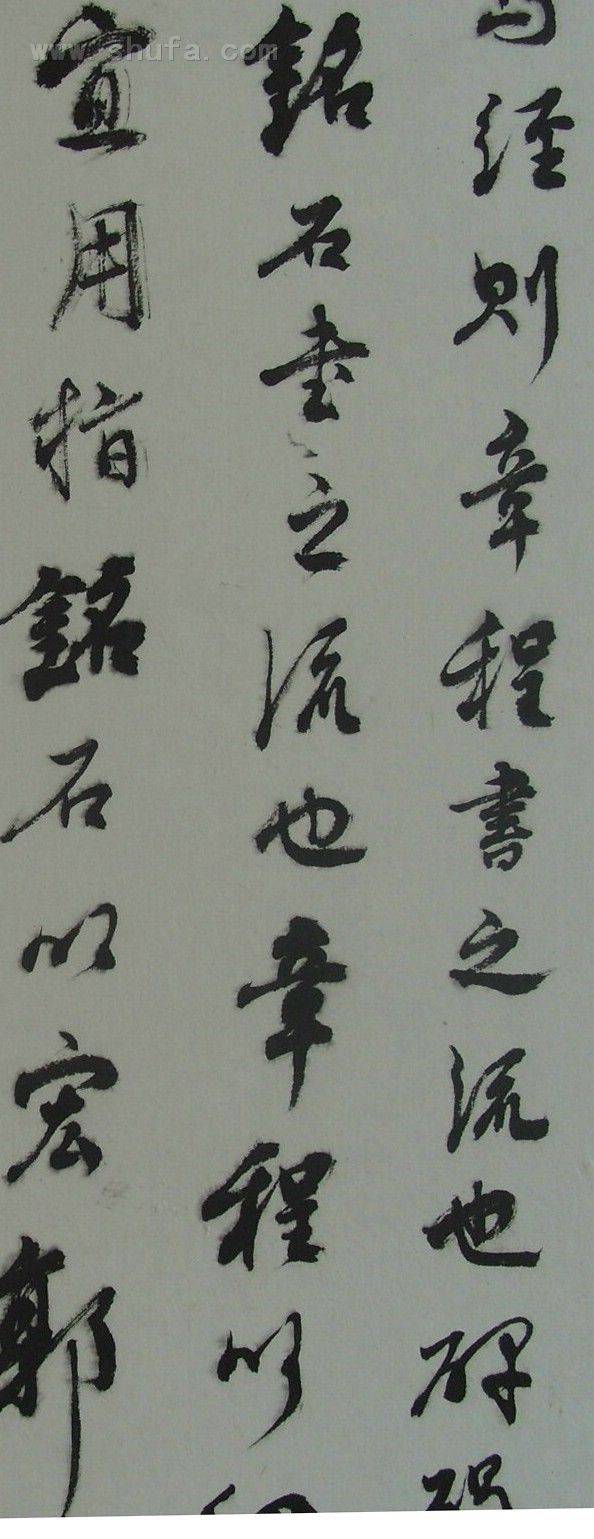 www.shufa.com
經則章程書之流也碑
銘石書之流也章程以
宜用指銘石以宏郭